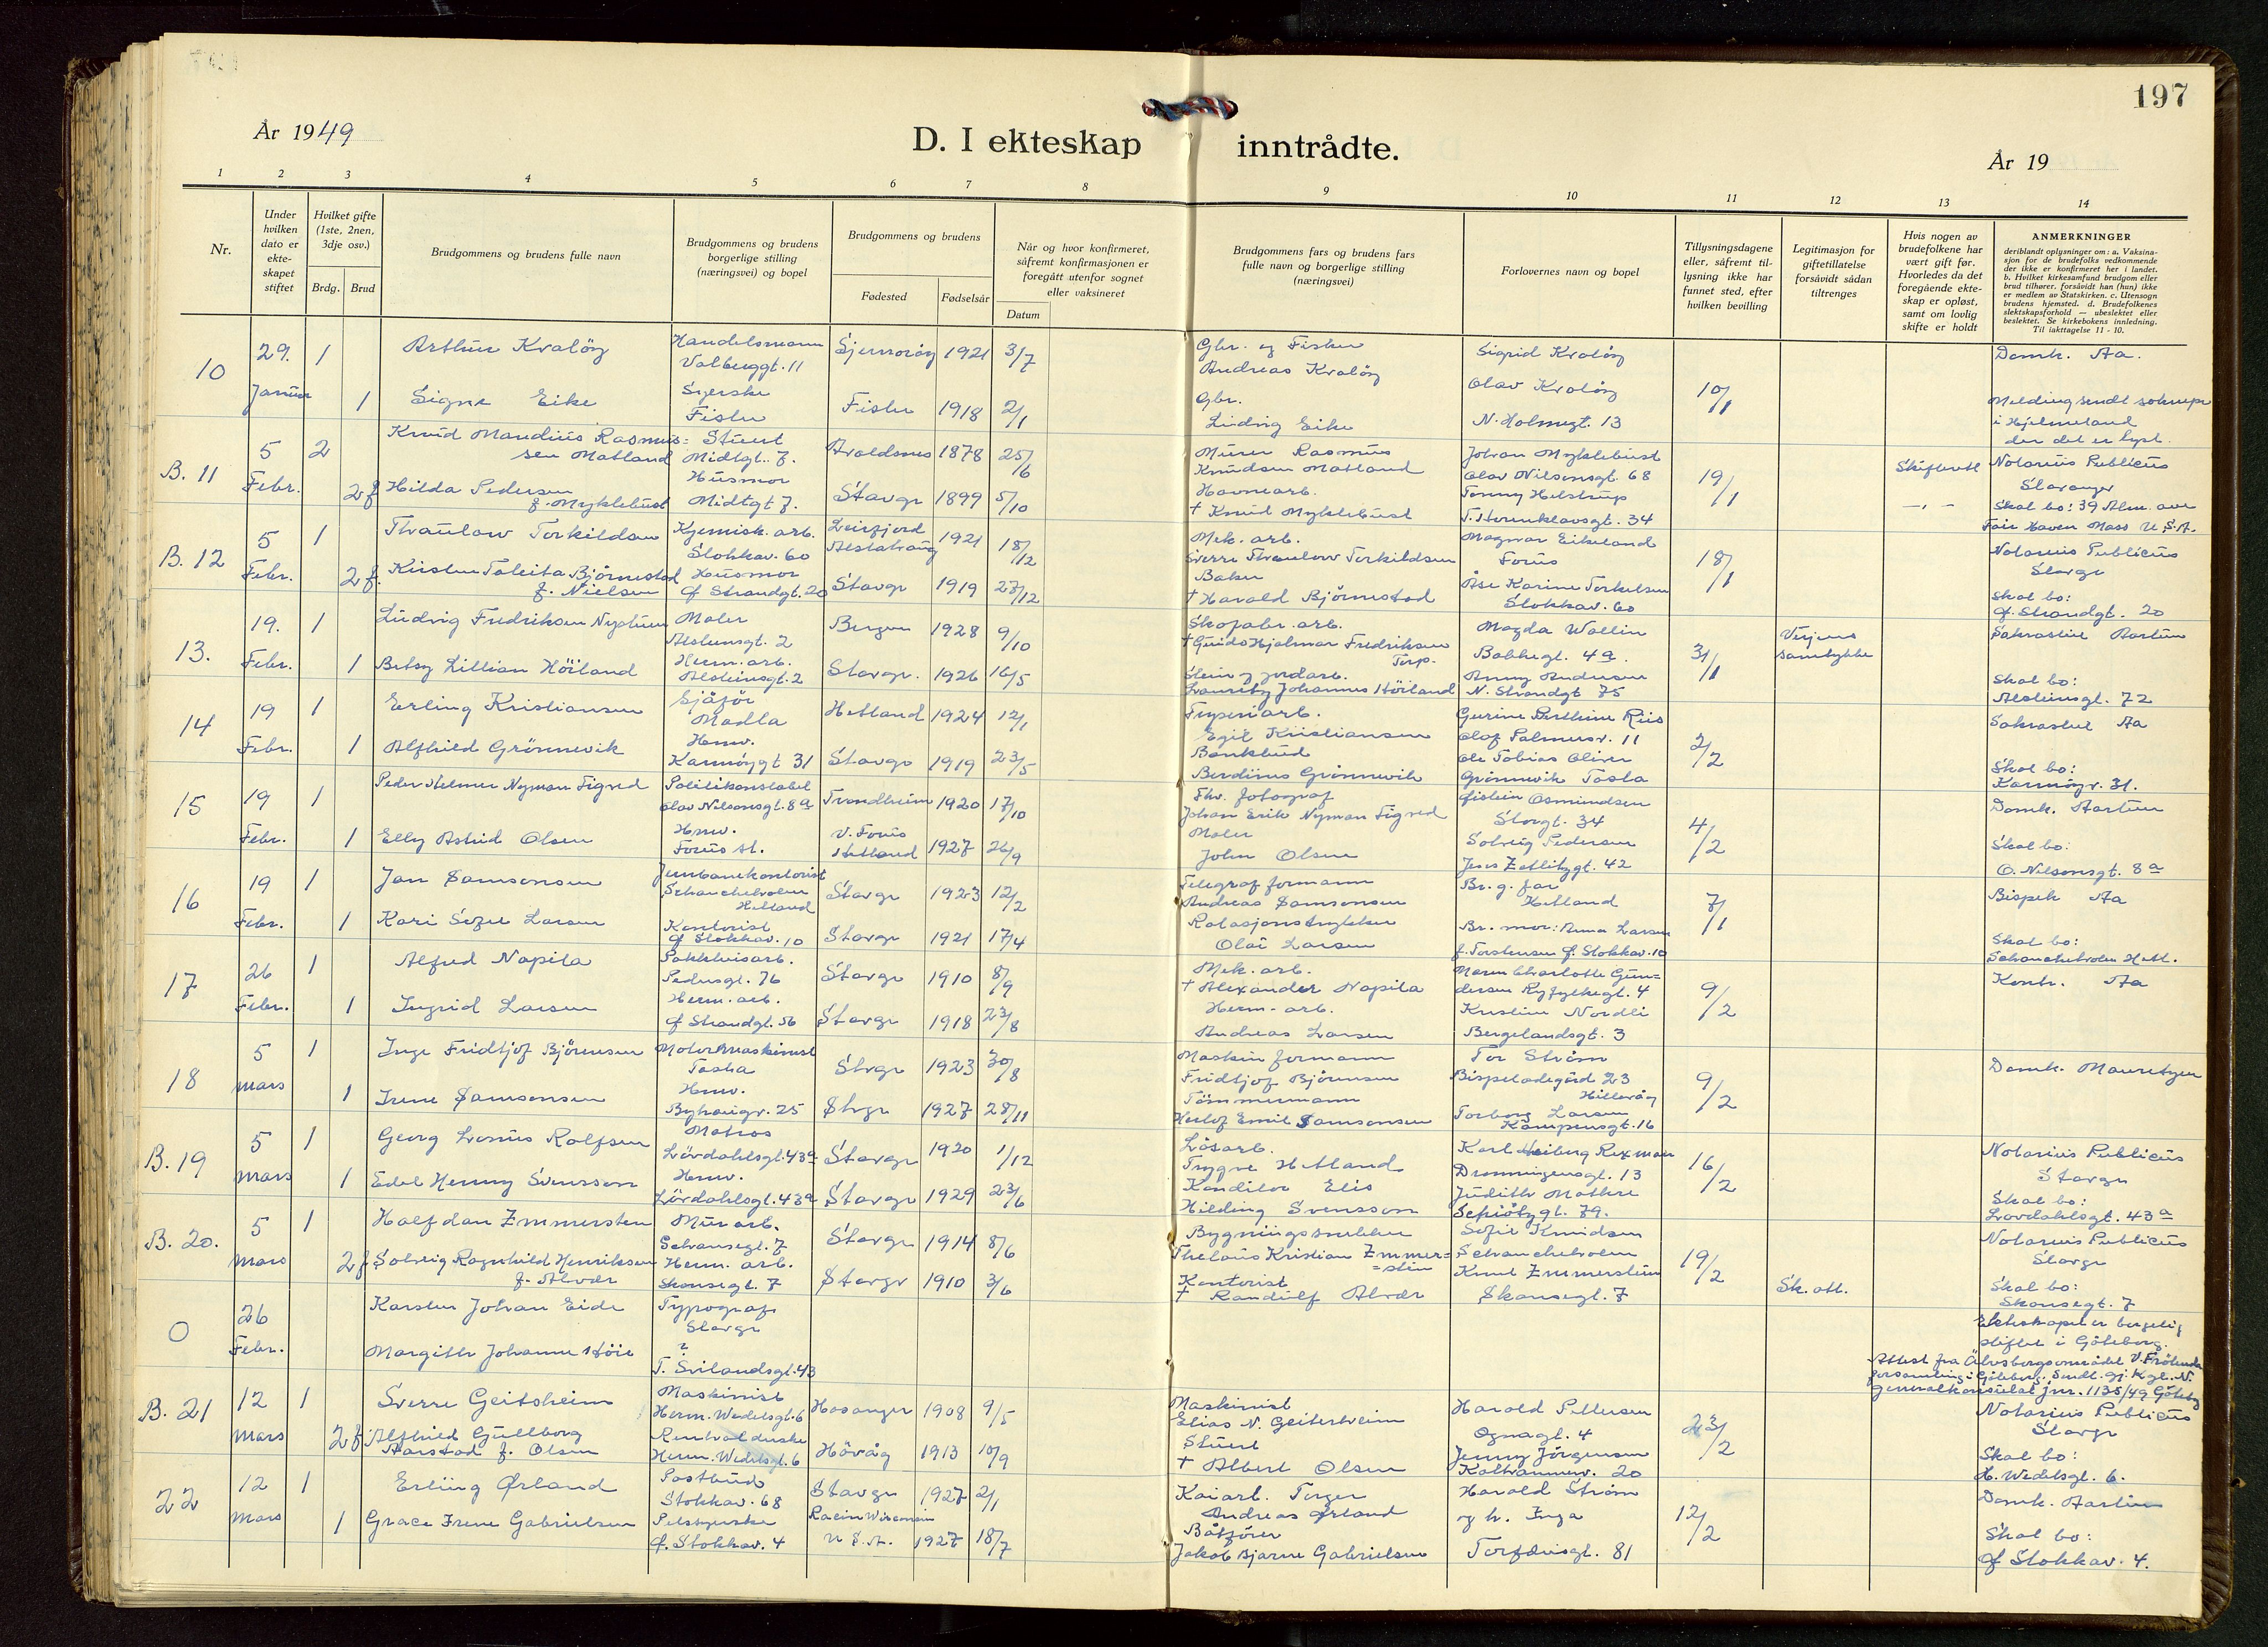 197
År 1949
D. I ekteskap inntrådte.
År 19
1 2 3 4 5 6 7 8 9 10 11 12 13 14
Nr.
Under hvilken dato er ekte-skapet stiftet
Hvilket gifte (1ste, 2nen, 3dje osv.)
Brdg. Brud
Brudgommens og brudens fulle navn
Brudgommens og brudens borgerlige stilling (næringsvei) og bopel
Brudgommens og brudens
Fødested Fødselsår
Når og hvor konfirmeret, såfremt konfirmasjonen er foregått utenfor sognet eller vaksineret
Datum
Brudgommens fars og brudens fars fulle navn og borgerlige stilling (næringsvei)
Forlovernes navn og bopel
Tillysningsdagene eller, såfremt til-lysning ikke har funnet sted, efter hvilken bevilling
Legitimasjon for giftetillatelse forsåvidt sådan tiltrenges
Hvis nogen av brudefolkene har vært gift før. Hvorledes da det foregående ekte-skap er opløst, samt om lovlig skifte er holdt
ANMERKNINGER
deriblandt oplysninger om: a. Vaksina-sjon for de brudefolks vedkommende der ikke er konfirmeret her i landet. b. Hvilket kirkesamfund brudgom eller brud tilhører, forsåvidt han (hun) ikke er medlem av Statskirken. c. Utensogn brudens hjemsted. d. Brudefolkenes slektskapsforhold — ubeslektet eller beslektet. Se kirkebokens innledning. Til iakttagelse 11 - 10.
10 29. Januar 1 Arthur Kvaløy Handelsmann Valberggt. 11 Sjernarøy 1921 3/7 Gbr. og Fisker Andreas Kvaløy Sigrid Kvaløy Domk. Aa.
1 Signe Eike Syerske Fister Fister 1918 2/1 Gbr. Ludvig Eike Olav Kvaløy N. Holmegt. 13 10/1 Melding sendt soknepr i Hjelmeland der det er lyst.
B. 11 5 Febr. 2 Knud Mandius Rasmus=sen Matland Stuert Midtgt. 7. Avaldsnes 1878 25/6 Murer Rasmus Knudsen Matland Johan Myklebust Olav Nilsensgt. 68 19/1 Skifteatt Notarius Publicus Stavanger
2 f Hilda Pedersen f. Myklebust Husmor Midtgt 7. Stavgr 1899 5/10 Havnearb. † Knud Myklebust Tonny Helstrup T. Hornklovsgt. 34 -,- Skal bo: 39 Alm. ave Fair Haven Mass U.S.A.
B. 12 5 Febr. 1 Thraulow Torkildsen Kjemisk. arb. Stokkav. 60 Leirfjord Alstahaug 1921 18/12 Mek. arb. Sverre Thraulow Torkildsen Magnar Eikeland Forus 18/1 Notarius Publicus Stavgr
2 f. Kirsten Taleita Bjørnestad f. Nielsen Husmor Ø Strandgt. 20 Stavgr 1919 27/12 Baker † Harald Bjørnestad Åse Karine Torkelsen Stokkav. 60 Skal bo: Ø. Strandgt. 20
13. 19. Febr. 1 Ludvig Fredriksen Maler Alsteinsgt. 2 Bergen 1928 9/10 Skofabr. arb. † Guido Hjalmar Fredriksen Torp. Magda Wallin Bakkegt. 4a. 31/1 Verjens samtykke Sakrastiet Aartun
1 Betsy Lillian Høiland Herm. arb. Alsteinsgt. 2 Stavgr. 1926 16/5 Stein og jordarb. Lauritz Johannes Høiland Anny Andersen N. Strandgt 75 Skal bo: Alsteinsgt. 72
14 19 Febr. 1 Erling Kristiansen Sjåfør Madla Hetland 1924 12/1 Fryseriarb. Egil Kristiansen Gurine Berthine Riis Olaf Palmesv. 11 2/2 Sakrastiet Aa
1 Alfhild Grønnevik Hmv. Karmøygt 31 Stavgr 1919 23/5 Bankbud Berdinus Grønnevik Ole Tobias Oliver Grønnevik Tasta Skal bo: Karmøyv. 31.
15 19 Febr. 1 Peder Helmer Nyman Tigved Politikonstabel Olav Nilsensgt. 8a Trondheim 1920 17/10 Fhv. fotograf Johan Erik Nyman Tigved Øistein Osmundsen Storgt. 34 4/2 Domk. Aartun
1 Elly Astrid Olsen Hmv. Forus st. V. Forus Hetland 1927 26/9 Maler John Olsen Solveig Pedersen Jens Zetlitzgt. 42 Skal bo: O. Nilsensgt. 8a
16 19 Febr. 1 Jan Samsonsen Jernbanekontorist Schancheholen Hetland Stavgr 1923 12/2 Telegraf formann Andreas Samsonsen Br. g. far Hetland 7/1 Bispek Aa
1 Kari Sofie Larsen Kontorist Ø Stokkav. 10 Stavgr 1921 17/4 Rotasjonstrykker Olai Larsen Br. mor: Anna Larsen f. Torstensen Ø. Stokkav. 10 Skal bo: Schancheholen Hetl.
17 26 Febr. 1 Alfred Napila Pakkhusarb. Pedersgt. 76 Stavgr 1910 8/9 Mek. arb. † Alexander Napila Maren Charlotte Gun=dersen Ryfylkegt. 4 9/2 Kontr. Aa
1 Ingrid Larsen Herm. arb. Ø Strandgt. 56 Stavgr 1918 23/8 Herm. arb. Andreas Larsen Kristine Nordli Bergelandsgt. 3
18 5 mars 1 Inge Fridtjof Bjørensen Motormaskinist Tasta Stvgr 1923 30/8 Maskin formann Fridtjof Bjørensen Tor Strøm Bispeladegård 23 Hillevåg 9/2 Domk. Mauritzen
1 Irene Samsonsen Hmv. Byhaugv. 25 Stvgr 1927 28/11 Tømmermann Herlof Emil Samsonsen Torborg Larsen Kampensgt. 16
B. 19 5 mars 1 Georg Lenius Rolfsen Matros Løvdahlsgt. 43a Stavgr 1920 1/12 Løsarb. Trygve Hetland Karl Heiberg Rexman Dronningensgt. 13 16/2 Notarius Publicus Stavgr
1 Edel Henny Svensson Hmv. Løvdahlsgt. 43a Stavgr 1929 23/6 Konditor Elis Hilding Svensson Judith Mathre Schiøtzgt. 79. Skal bo: Løvdahlsgt. 43a
B. 20. 5 mars 1 Halfdan Zmmerstein Murarb. Schansegt. 7 Stavgr 1914 8/6 Bygningssnekker Thelaus Kristian Zmmer=stein Sofie Knudsen Schancheholen 19/2 Notarius Publicus Stavgr
2 f Solveig Ragnhild Henriksen f. Alvær Herm. arb. Skansegt. 7 Stavgr 1910 3/6 Kontorist † Randulf Alvær Knut Zmmerstein Skansegt. 7 Sk. att. Skal bo: Skansegt. 7
0 26 Febr. Karsten Johan Eide Typograf Stavgr Ekteskapet er borgerlig stiftet i Göteborg.
Margith Johanne Høie ? T. Svilandsgt. 43 Attest fra Älvsborgsområdet V. Frölunda forsamling i Göteborg. Sendt gj. Kgl. N. generalkonsulat jnr. 1135/49 Göteborg
B. 21 12 mars 1 Sverre Geitsheim Maskinist Herm. Wedelsgt. 6 Hosanger 1908 9/5 Maskinist Elias N. Geiterheim Harald Pettersen Ognagt. 4 23/2 Notarius Publicus Stavgr
2 f Alfhild Gullborg Aarstad f. Olsen Renholderske Herm. Wedelsgt. 6 Høvåg 1913 10/9 Stuert † Albert Olsen Jenny Jørgensen Kalhammerv. 20 Skal bo: H. Wedelsgt. 6.
22 12 mars 1 Erling Ørland Postbud Stokkav. 68 Stavgr 1927 2/1 Kaiarb. Torger Andreas Ørland Harald Strøm og h. Inga 12/2 Domk. Aartun
1 Grace Irene Gabrielsen Pelssyerske Ø. Stokkav. 4 Racin Wisconsin U.S.A. 1927 18/7 Båtfører Jakob Bjarne Gabrielsen Torfæusgt. 81 Skal bo: Ø Stokkav. 4.